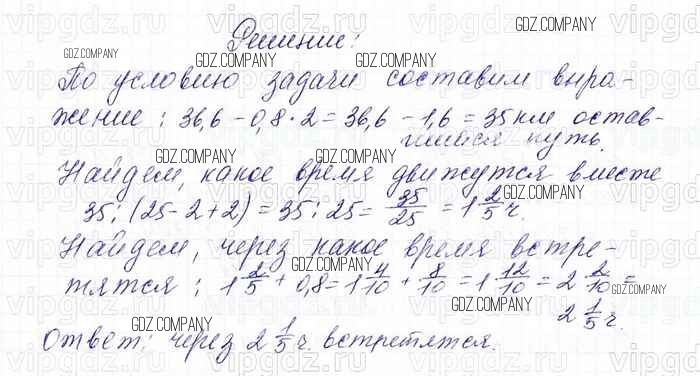 Решение:
По условию задачи составим выра-
жение: 36,6 - 0,8 · 2 = 36,6 - 1,6 = 35 км остав-
шийся путь.
Найдем, какое время движутся вместе
35 : (25 - 2 + 2) = 35 : 25 = 35/25 = 1 2/5 ч.
Найдем, через какое время встре-
тятся: 1 2/5 + 0,8 = 1 4/10 + 8/10 = 1 12/10 = 2 2/10 =
2 1/5 ч.
Ответ: через 2 1/5 ч. встретятся.
GDZ.COMPANY
vipgdz.ru